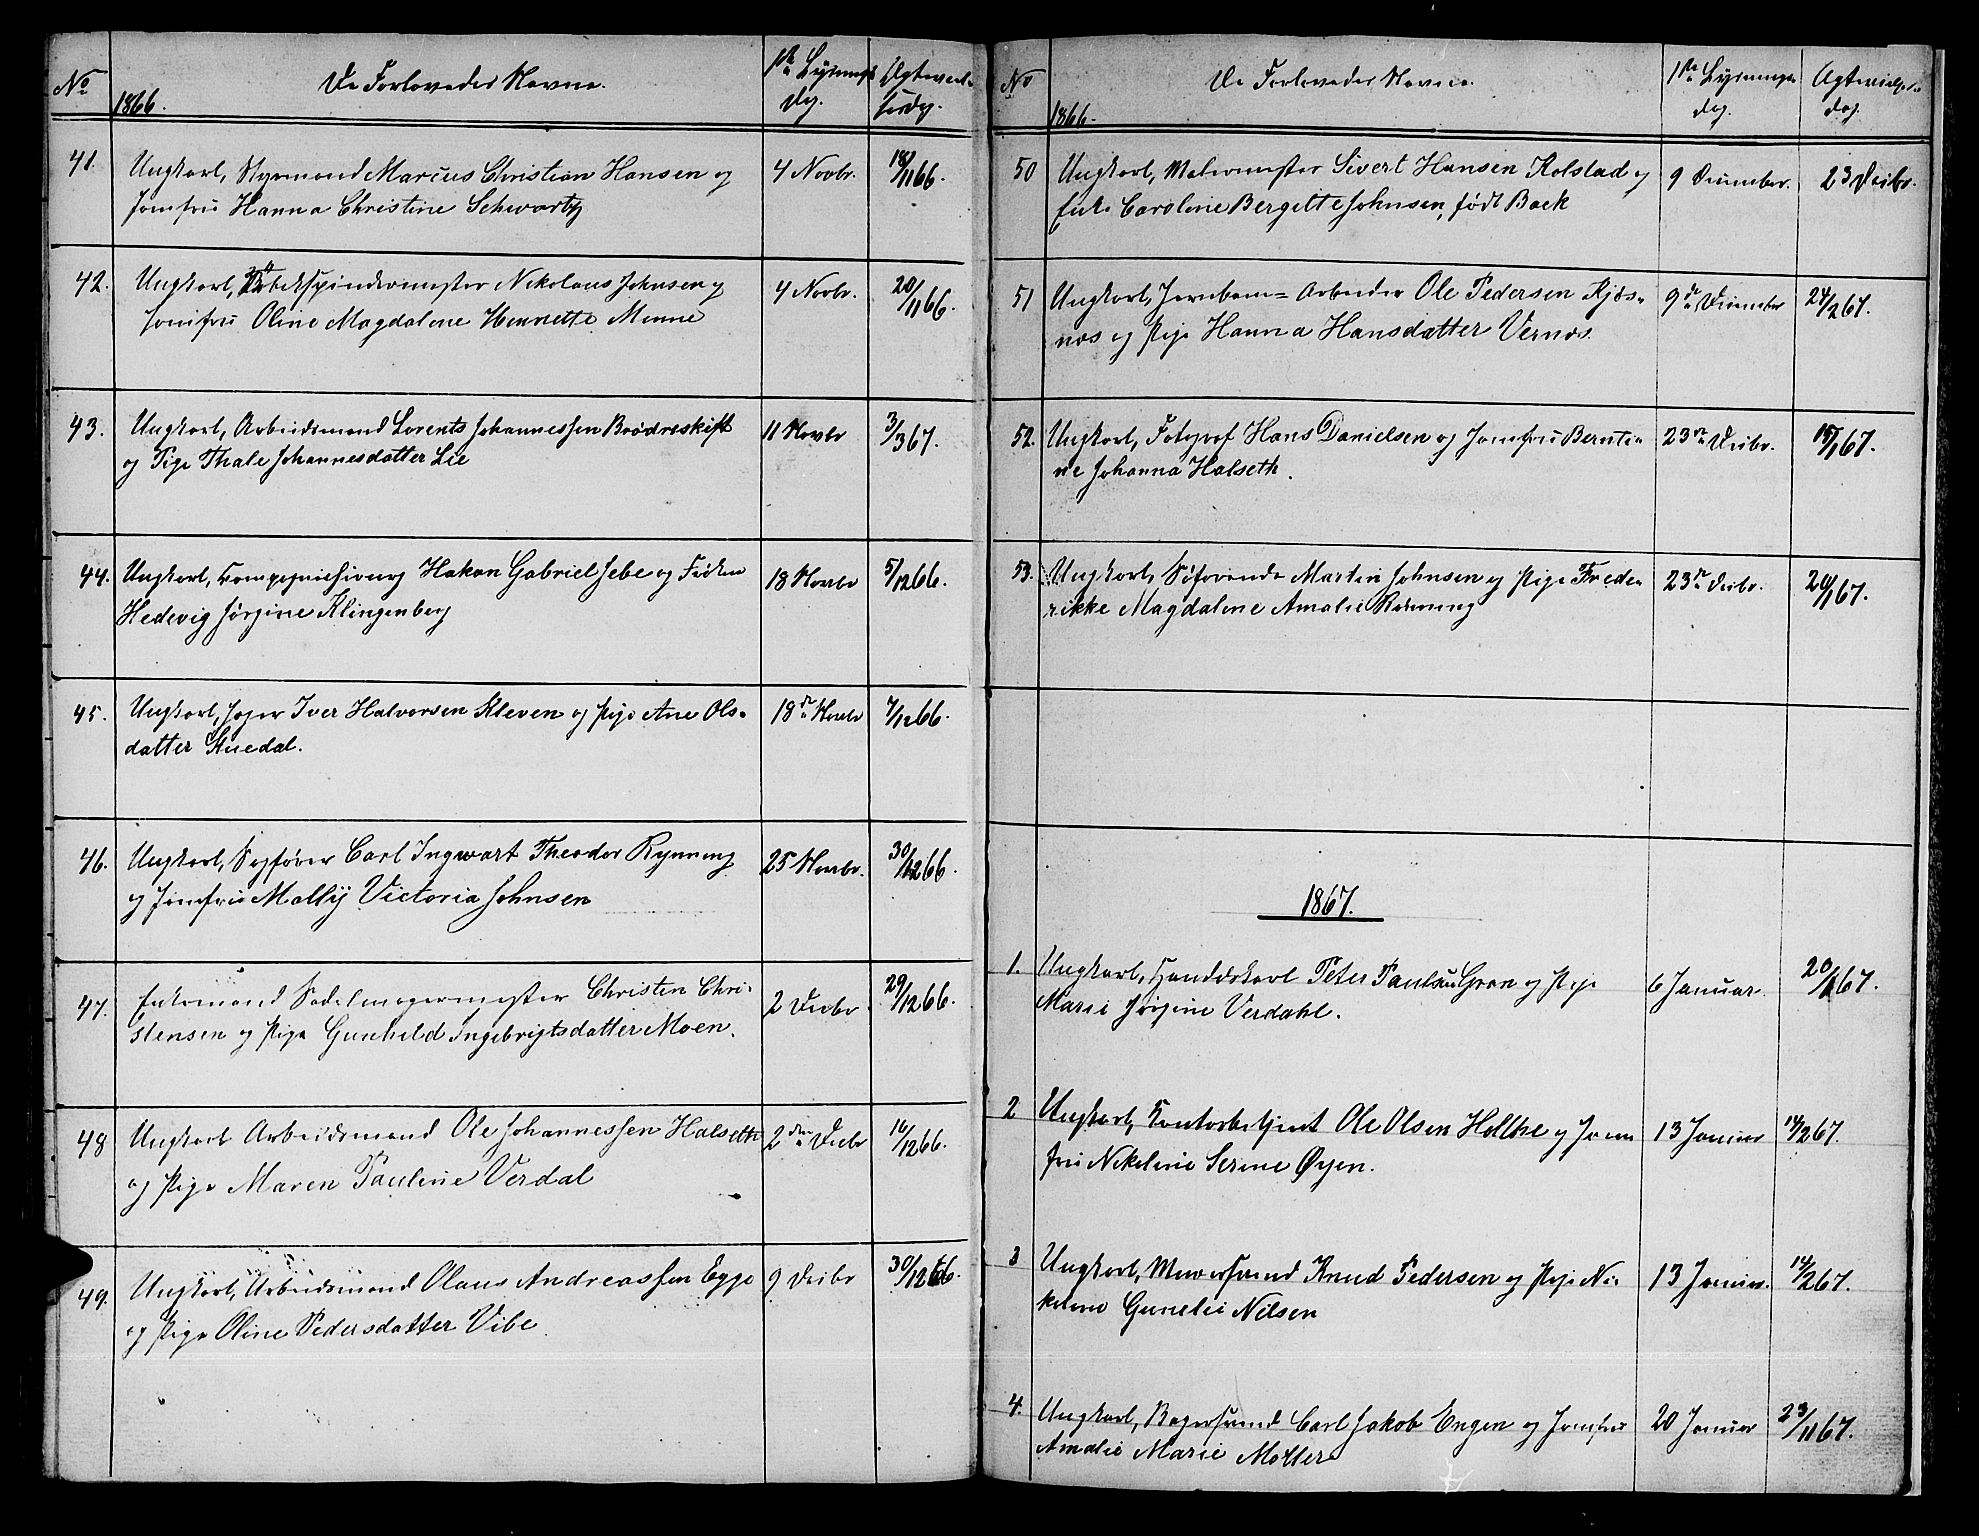 No
De Forlovedes Navne.
1ste Lysnings
Dag.
Ægteviel-
sesdag.
1866.
41.
Ungkarl, Styrmand Marcus Christian Hansen og
Jomfru Hanna Christine Schwartz
4 Novbr.
18/11 66.
42.
Ungkarl, Nikolaus Johnsen og
Jomfru Oline Magdalene Henriette Menne
4 Novbr.
20/11 66.
43.
Ungkarl, Arbeidsmand Lorents Johannessen Brødreskift
og Pige Thale Johannesdatter Lie
11 Novbr
3/3 67.
44.
Ungkarl, Hakon Gabriel Sebe og Frøken
Hedevig Jørgine Klingenberg
18 Novbr
5/12 66.
45.
Ungkarl, Iver Halvorsen Kleven og Pige Ane Ols-
datter Snedal.
18de Novbr
7/12 66.
46.
Ungkarl, Sagfører Carl Ingwart Theodor Rynning
og Jomfru Mally Victoria Johnsen
25 Novbr.
30/12 66.
47.
Enkemand Sadelmagermester Christen Chri-
stensen og Pige Gunhild Ingebrigtsdatter Moen.
2 Decbr
29/12 66.
48
Ungkarl Arbeidsmand Ole Johannessen Halseth
og Pige Maren Pauline Verdal
2den Decbr
16/12 66.
49.
Ungkarl, Arbeidsmand Olaus Andreassen Egge
og Pige Oline Pedersdatter Vibe.
9 Decbr
30/12 66.
No
De Forlovedes Navne.
1ste Lysnings
dag.
Ægtevielses-
dag.
1866.
50
Ungkarl, Malermester Sivert Hansen Kolstad og
Enke Caroline Bergitte Johnsen, født Back
9 December.
23 Decbr.
51
Ungkarl, Jernbane-Arbeider Ole Pedersen Kjøs-
nes og Pige Hanna Hansdatter Vernes.
9de December
24/2 67.
52.
Ungkarl, Fotograf Hans Danielsen og Jomfru Bernti-
ne Johanna Halseth.
23de Decbr.
15/1 67.
53.
Ungkarl, Søfarende Martin Johnsen og Pige Frede-
rikke Magdalene Amalie Rønning
23de Decbr.
20/1 67.
1867.
1.
Ungkarl, Handelskarl Peter Paulsen Gran og Pige
Marie Jørgine Verdahl.
6 Januar.
20/1 67.
2
Ungkarl, Kontorbetjent Ole Olsen Holthe og Jom
fru Nikoline Serine Øyen.
13 Januar
14/2 67.
3
Ungkarl, Murersvend Knud Pedersen og Pige Ni-
koline Gunelie Nilsen
13 Januar.
14/2 67.
4.
Ungkarl, Bagersvend Carl Jakob Engen og Jomfru
Amalie Marie Møller
20 Januar
23/11 67.